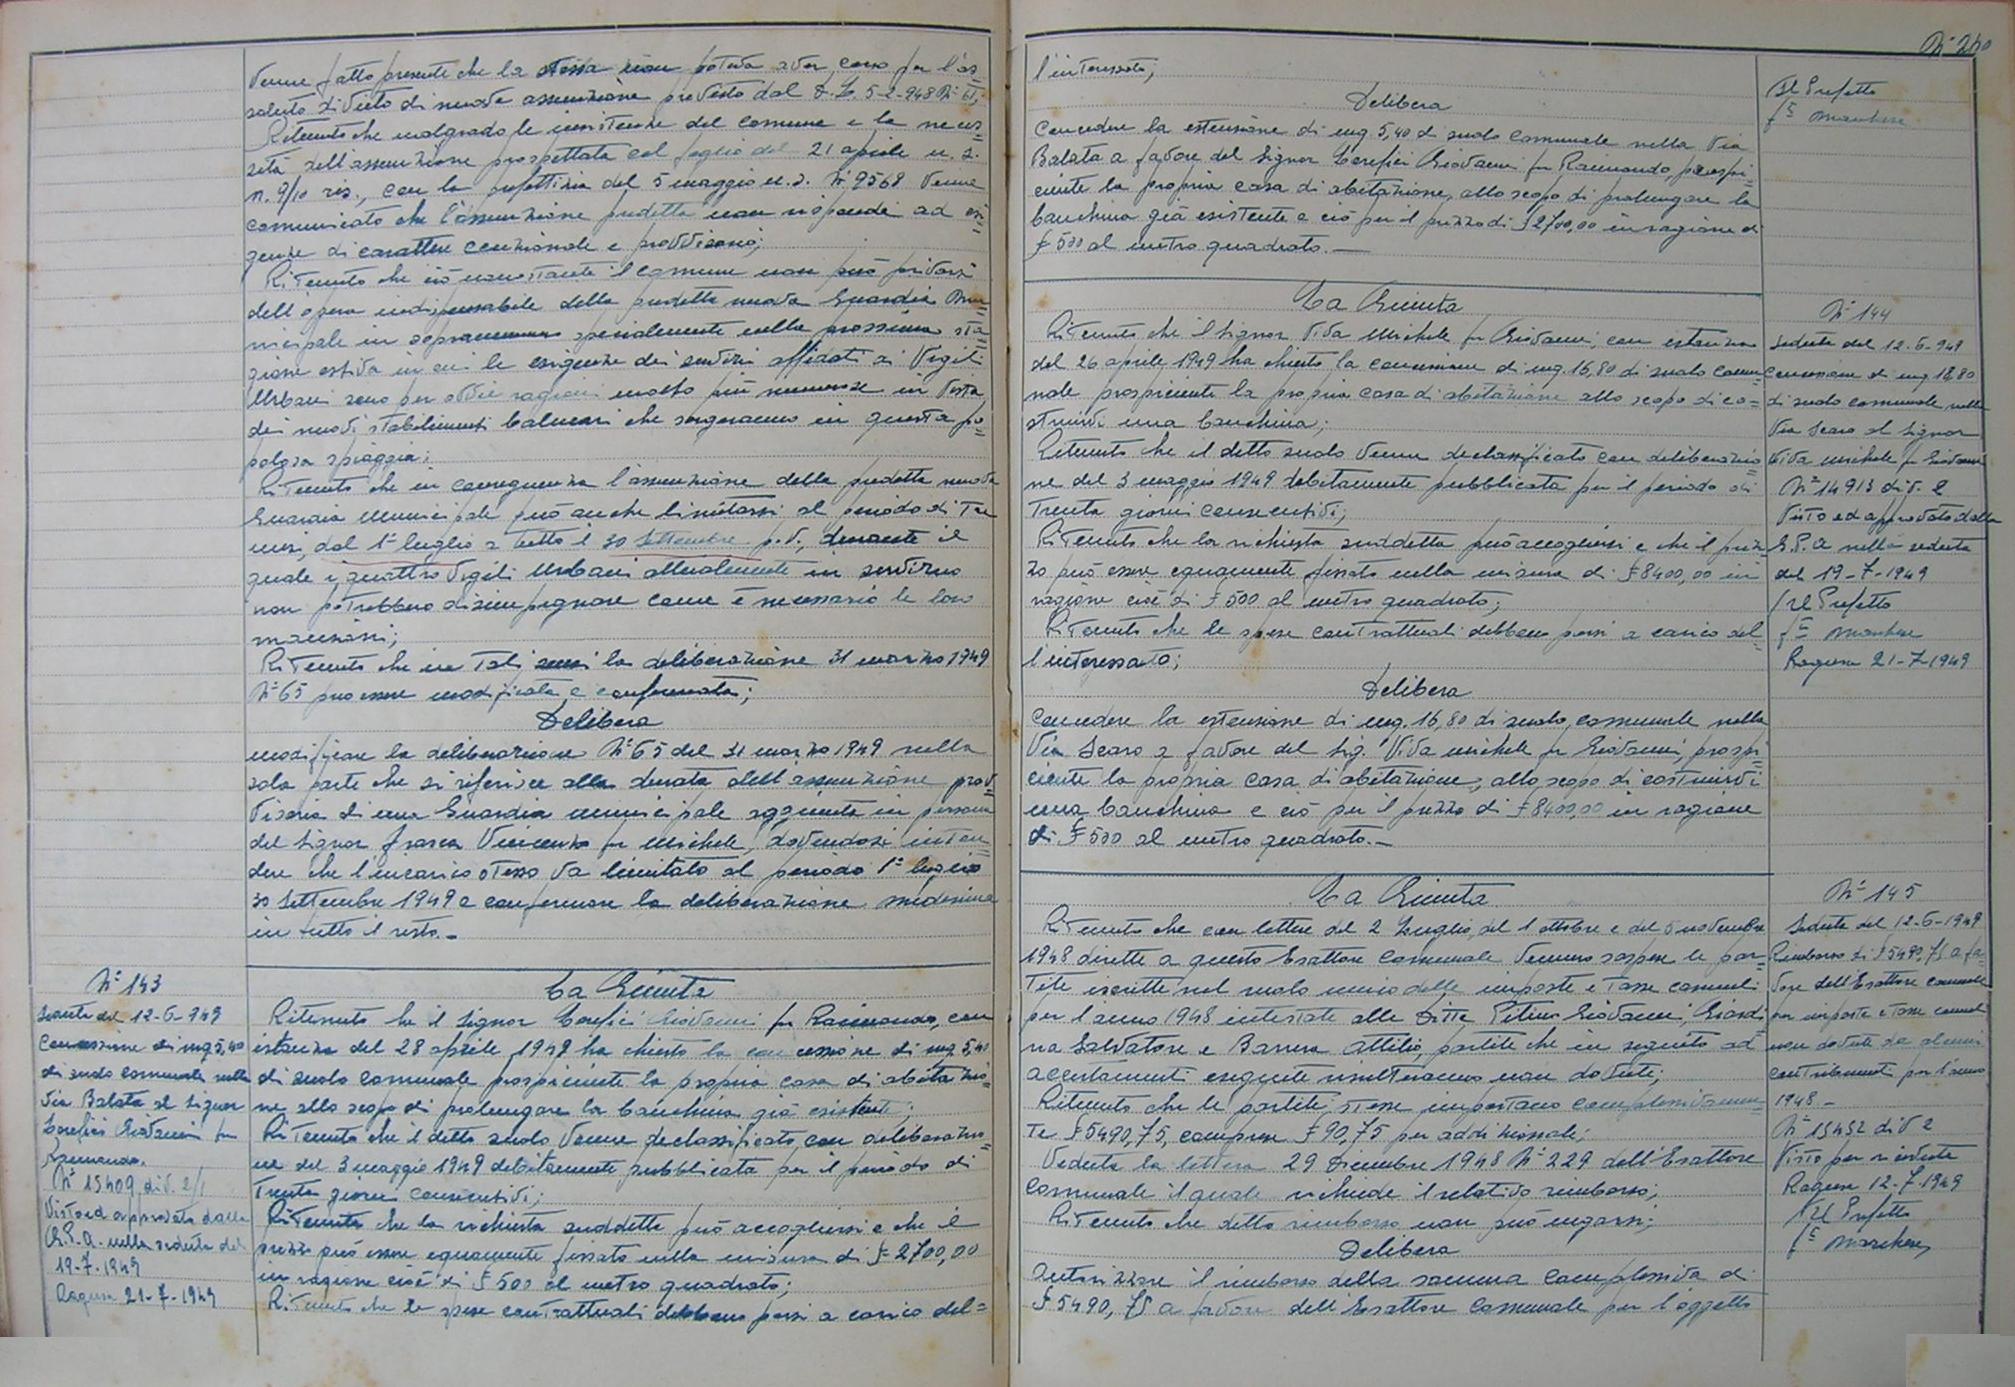 Venne fatto presente che la stessa non poteva aver corso per l'as=
soluto divieto di nuove assunzioni previsto dal D.L. 5-2-948 N° 61;
Ritenuto che malgrado le insistenze del Comune e la neces=
sità dell'assunzione prospettata col foglio del 21 aprile u.s.
n. 9/10 ris., con la prefettizia del 5 maggio u.s. N° 9568 venne
comunicato che l'assunzione predetta non risponde ad esi=
genze di carattere eccezionale e provvisorio;
Ritenuto che ciò nonostante il Comune non può privarsi
dell'opera indispensabile della predetta nuova Guardia Mu=
nicipale in specialmente nella prossima sta=
gione estiva in cui le esigenze dei servizi affidati ai Vigili
Urbani sono per ovvie ragioni molto più numerose in vista
dei nuovi stabilimenti balneari che sorgeranno in questa po=
polosa spiaggia;
Ritenuto che in conseguenza l'assunzione della predetta nuova
Guardia Municipale può anche limitarsi al periodo di tre
mesi, dal 1° luglio a tutto il 30 Settembre p.v., durante il
quale i quattro Vigili Urbani attualmente in servizio
non potrebbero disimpegnare come è necessario le loro
mansioni;
Ritenuto che in tali sensi la deliberazione 31 marzo 1949
N° 65 può essere modificata e confermata;
Delibera
modificare la deliberazione N° 65 del 31 marzo 1949 nella
sola parte che si riferisce alla durata dell'assunzione prov=
visoria di una Guardia municipale aggiunta in persona
del Signor Frasca Vincenzo fu Michele, dovendosi inten=
dere che l'incarico stesso va limitato al periodo 1° luglio
30 Settembre 1949 e confermare la deliberazione medesima
in tutto il resto.-
N° 143
Seduta del 12-6-949
Concessione di mq 5,40
di suolo comunale nella
Via Balata al Signor
Giovanni fu
Raimondo.
N° 15409 div. 2/1
Visto ed approvato dalla
G.P.A. nella seduta del
19-7-1949
Ragusa 21-7-1949
La Giunta
Ritenuto che il Signor Giovanni fu Raimondo, con
istanza del 28 aprile 1949 ha chiesto la concessione di mq 5,40
di suolo comunale prospiciente la propria casa di abitazio=
ne allo scopo di prolungare la banchina già esistente;
Ritenuto che il detto suolo venne declassificato con deliberazio=
ne del 3 maggio 1949 debitamente pubblicata per il periodo di
trenta giorni consecutivi;
Ritenuto che la richiesta suddetta può accogliersi e che il
prezzo può essere equamente fissato nella misura di £ 2700,00
in ragione cioè di £ 500 al metro quadrato;
Ritenuto che le spese contrattuali debbano porsi a carico del=
N° 240
l'interessato;
Delibera
Concedere la estensione di mq 5,40 di suolo comunale nella Via
Balata a favore del Signor Giovanni fu Raimondo, prospi=
ciente la propria casa di abitazione, allo scopo di prolungare la
banchina già esistente e ciò per il prezzo di £ 2700,00 in ragione di
£ 500 al metro quadrato.-
Il Prefetto
f° Marchese
La Giunta
Ritenuto che il Signor Viva Michele fu Giovanni, con istanza
del 26 aprile 1949 ha chiesto la concessione di mq. 16,80 di suolo comu=
nale prospiciente la propria casa di abitazione allo scopo di co=
struirvi una banchina;
Ritenuto che il detto suolo venne declassificato con deliberazio=
ne del 3 maggio 1949 debitamente pubblicata per il periodo di
trenta giorni consecutivi;
Ritenuto che la richiesta suddetta può accogliersi e che il prez=
zo può essere equamente fissato nella misura di £ 8400,00 in
ragione cioè di £ 500 al metro quadrato;
Ritenuto che le spese contrattuali debbano porsi a carico del=
l'interessato;
Delibera
Concedere la estensione di mq. 16,80 di suolo comunale nella
Via Scaro a favore del Sig. Viva Michele fu Giovanni, prospi=
ciente la propria casa di abitazione, allo scopo di costruirvi
una banchina e ciò per il prezzo di £ 8400,00 in ragione
di £ 500 al metro quadrato.-
N° 144
Seduta del 12-6-949
Concessione di mq 16,80
di suolo comunale nella
Via Scaro al Signor
Viva Michele fu Giovanni
N° 14913 div. 2
Visto ed approvato dalla
G.P.A. nella seduta
del 19-7-1949
Il Prefetto
f° Marchese
Ragusa 21-7-1949
La Giunta
Ritenuto che con lettere del 2 Luglio, del 1 ottobre e del 5 novembre
1948 dirette a questo Esattore Comunale vennero sospese le par=
tite iscritte nel ruolo unico delle imposte e tasse comunali
per l'anno 1948 intestate alle Ditte Giovanni, Giardi
na Salvatore e Barrera Attilio, partite che in seguito ad
accertamenti eseguiti risulteranno non dovute;
Ritenuto che le partite stesse importano complessivamen=
te £ 5490,75, comprese £ 90,75 per addizionali;
Veduta la lettera 29 Dicembre 1948 N° 229 dell'Esattore
Comunale il quale richiede il relativo rimborso;
Ritenuto che detto rimborso non può negarsi;
Delibera
autorizzare il rimborso della somma complessiva di
£ 5490,75 a favore dell'Esattore Comunale per l'oggetto
N° 145
Seduta del 12-6-1949
Rimborso di £ 5490,75 a fa=
vore dell'Esattore comunale
per imposte e tasse comunali
non dovute da alcuni
contribuenti per l'anno
1948.-
N° 15432 div 2
Visto per ricevuta
Ragusa 12-7-1949
Il Prefetto
f° Marchese